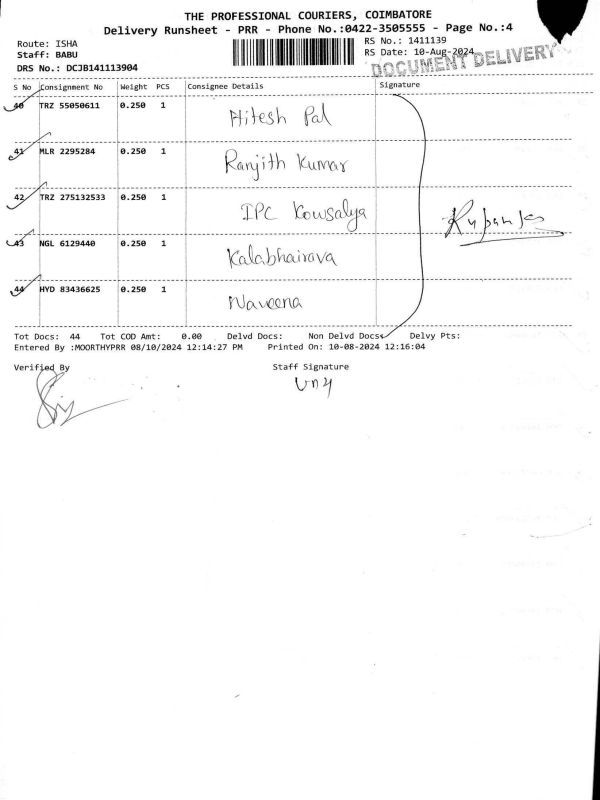 THE PROFESSIONAL COURIERS, COIMBATORE
Delivery Runsheet - PRR - Phone No.:0422-3505555 - Page No.:4
Route: ISHA RS No.: 1411139
Staff: BABU RS Date: 10-Aug-2024
DRS No.: DCJB141113904
DOCUMENT DELIVERY
S No Consignment No Weight PCS Consignee Details Signature
40 TRZ 55050611 0.250 1 Hitesh Pal
41 MLR 2295284 0.250 1 Ranjith Kumar
42 TRZ 275132533 0.250 1 IPC Kowsalya
43 NGL 6129440 0.250 1 Kalabhairava
44 HYD 83436625 0.250 1 Naveena
Tot Docs: 44 Tot COD Amt: 0.00 Delvd Docs: Non Delvd Docs: Delvy Pts:
Entered By :MOORTHYPRR 08/10/2024 12:14:27 PM Printed On: 10-08-2024 12:16:04
Verified By Staff Signature